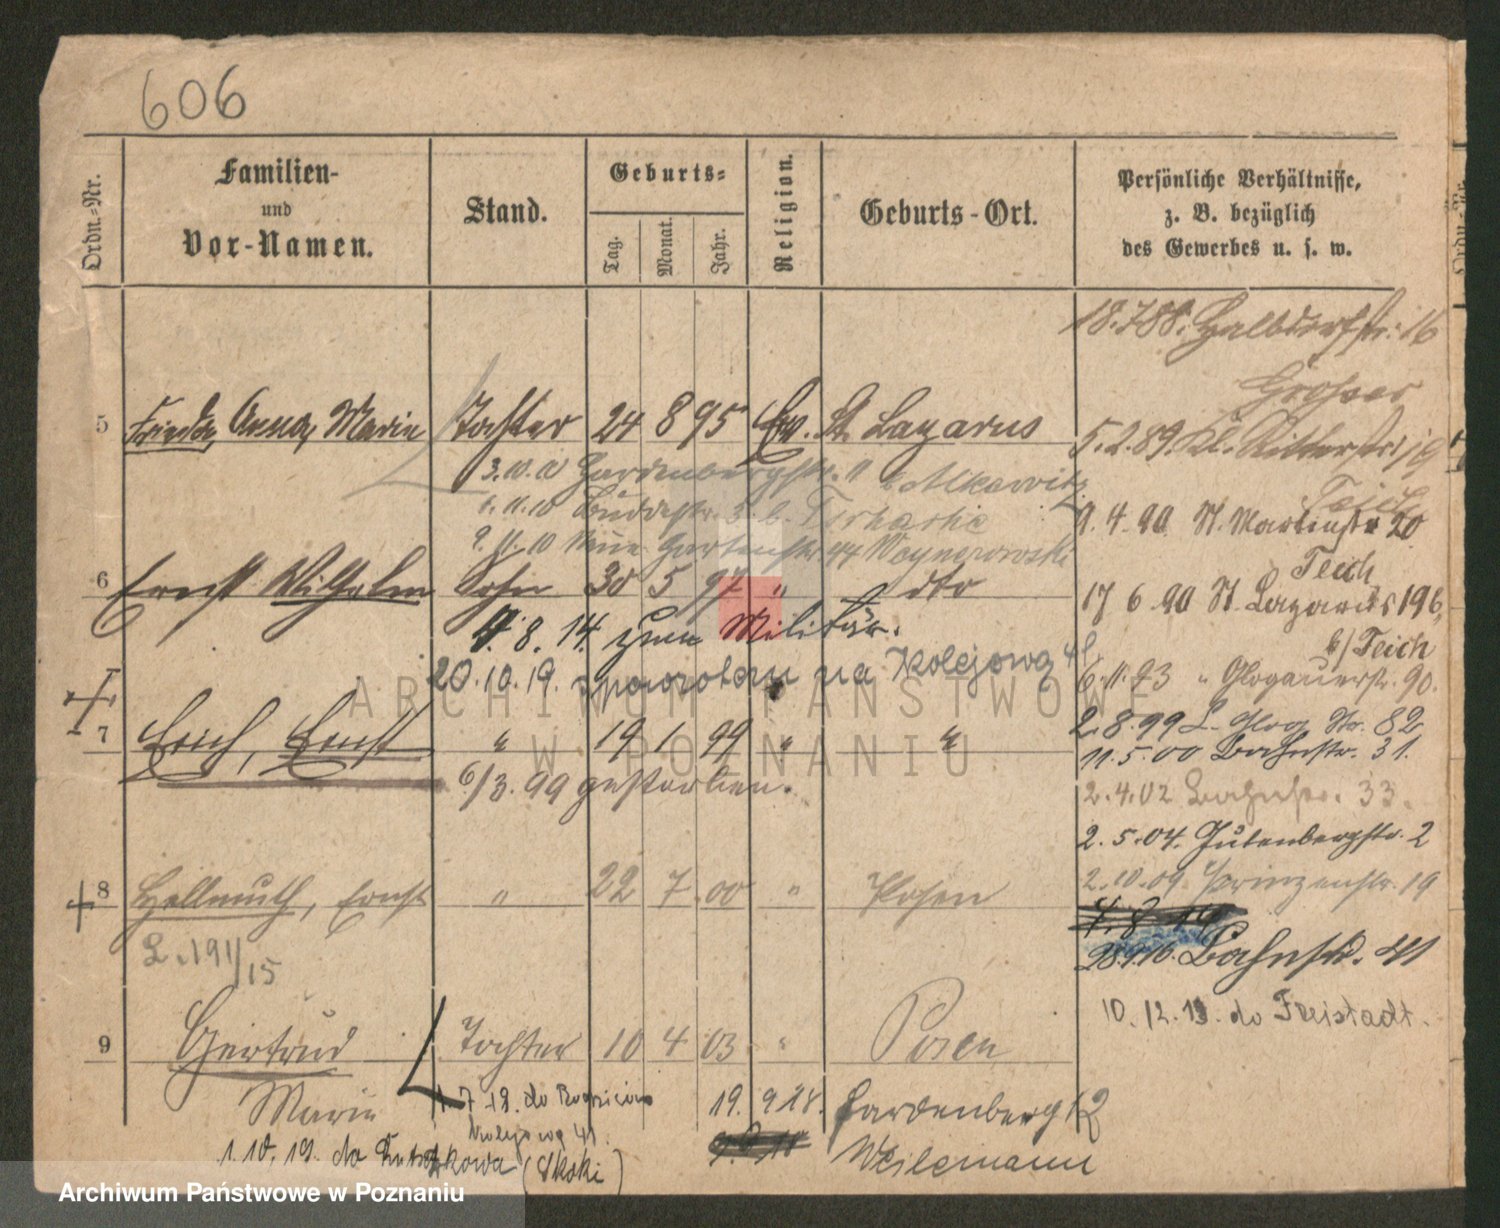 606
Ordn.-Nr.
Familien-
und
Vor-Namen.
Stand.
Geburts-
Tag.
Monat.
Jahr.
Religion.
Geburts-Ort.
Persönliche Verhältnisse,
z. B. bezüglich
des Gewerbes u. s. w.
18.7 88. Halbdorfstr. 16
Grosser
5 Frieda, Anna, Marie Tochter 24 8 95 Ev. St. Lazarus
5.2.89. Kl. Ritterstr. 19
3.10. Gardenbergstr. 11
9.4.90 St. Martinstr 20
9.11.10 Neue Gartenstr. 44 Waynorowski
Teich
6 Ernst Wilhelm Sohn 30 5 97 " dto
17 6 90 St. Lazarus 196
4.8.14. zum Militär.
b/ Teich
20.10.19. z powrotem na Kolejową 41
6.11.93 " Glogauerstr. 90.
7 Erich, Ernst " 19 1 99 " "
2.8.99 Glog. Str. 82
11.5.00 Bahnstr. 31.
6/3.99 gestorben.
2.4.02 Bahnstr. 33.
2.5.04. Gutenbergstr. 2
8 Hellmuth, Ernst " 22 7 00 " Posen
2.10.09 Prinzenstr. 19
4.8 14
28.9.16. Bahnstr. 41
L.191/15
10.12.13. do Freistadt.
9 Gertrud Tochter 10 4 03 " Posen
Marie
1.7 19. do
Kolejowa 41.
19. 9 18. Gardenberg 12
Weilemann
1.10.19. do (Skoki)
ARCHIWUM PAŃSTWOWE
W POZNANIU
Archiwum Państwowe w Poznaniu